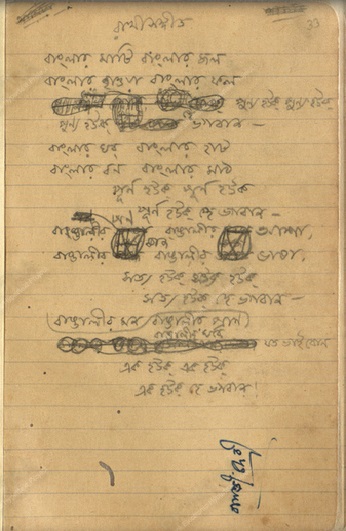 রাখীসঙ্গীত
33
বাংলার মাটি বাংলার জল
বাংলার হাওয়া বাংলার ফল
পুণ্য হউক্ পুণ্য হউক্
পুণ্য হউক্ হে ভগবান —
বাংলার ঘর বাংলার হাট
বাংলার বন বাংলার মাঠ
পূর্ণ হউক্ পূর্ণ হউক
পূর্ণ হউক্ হে ভগবান —
বাঙালীর পণ বাঙালীর আশা,
বাঙালীর বাঙালীর ভাষা,
সত্য হউক্ সত্য হউক্
সত্য হউক্ হে ভগবান —
(বাঙালীর মন বাঙালীর প্রাণ)
বাঙালীর ঘরে যত ভাইবোন
এক হউক্ এক হউক্
এক হউক্ হে ভগবান!